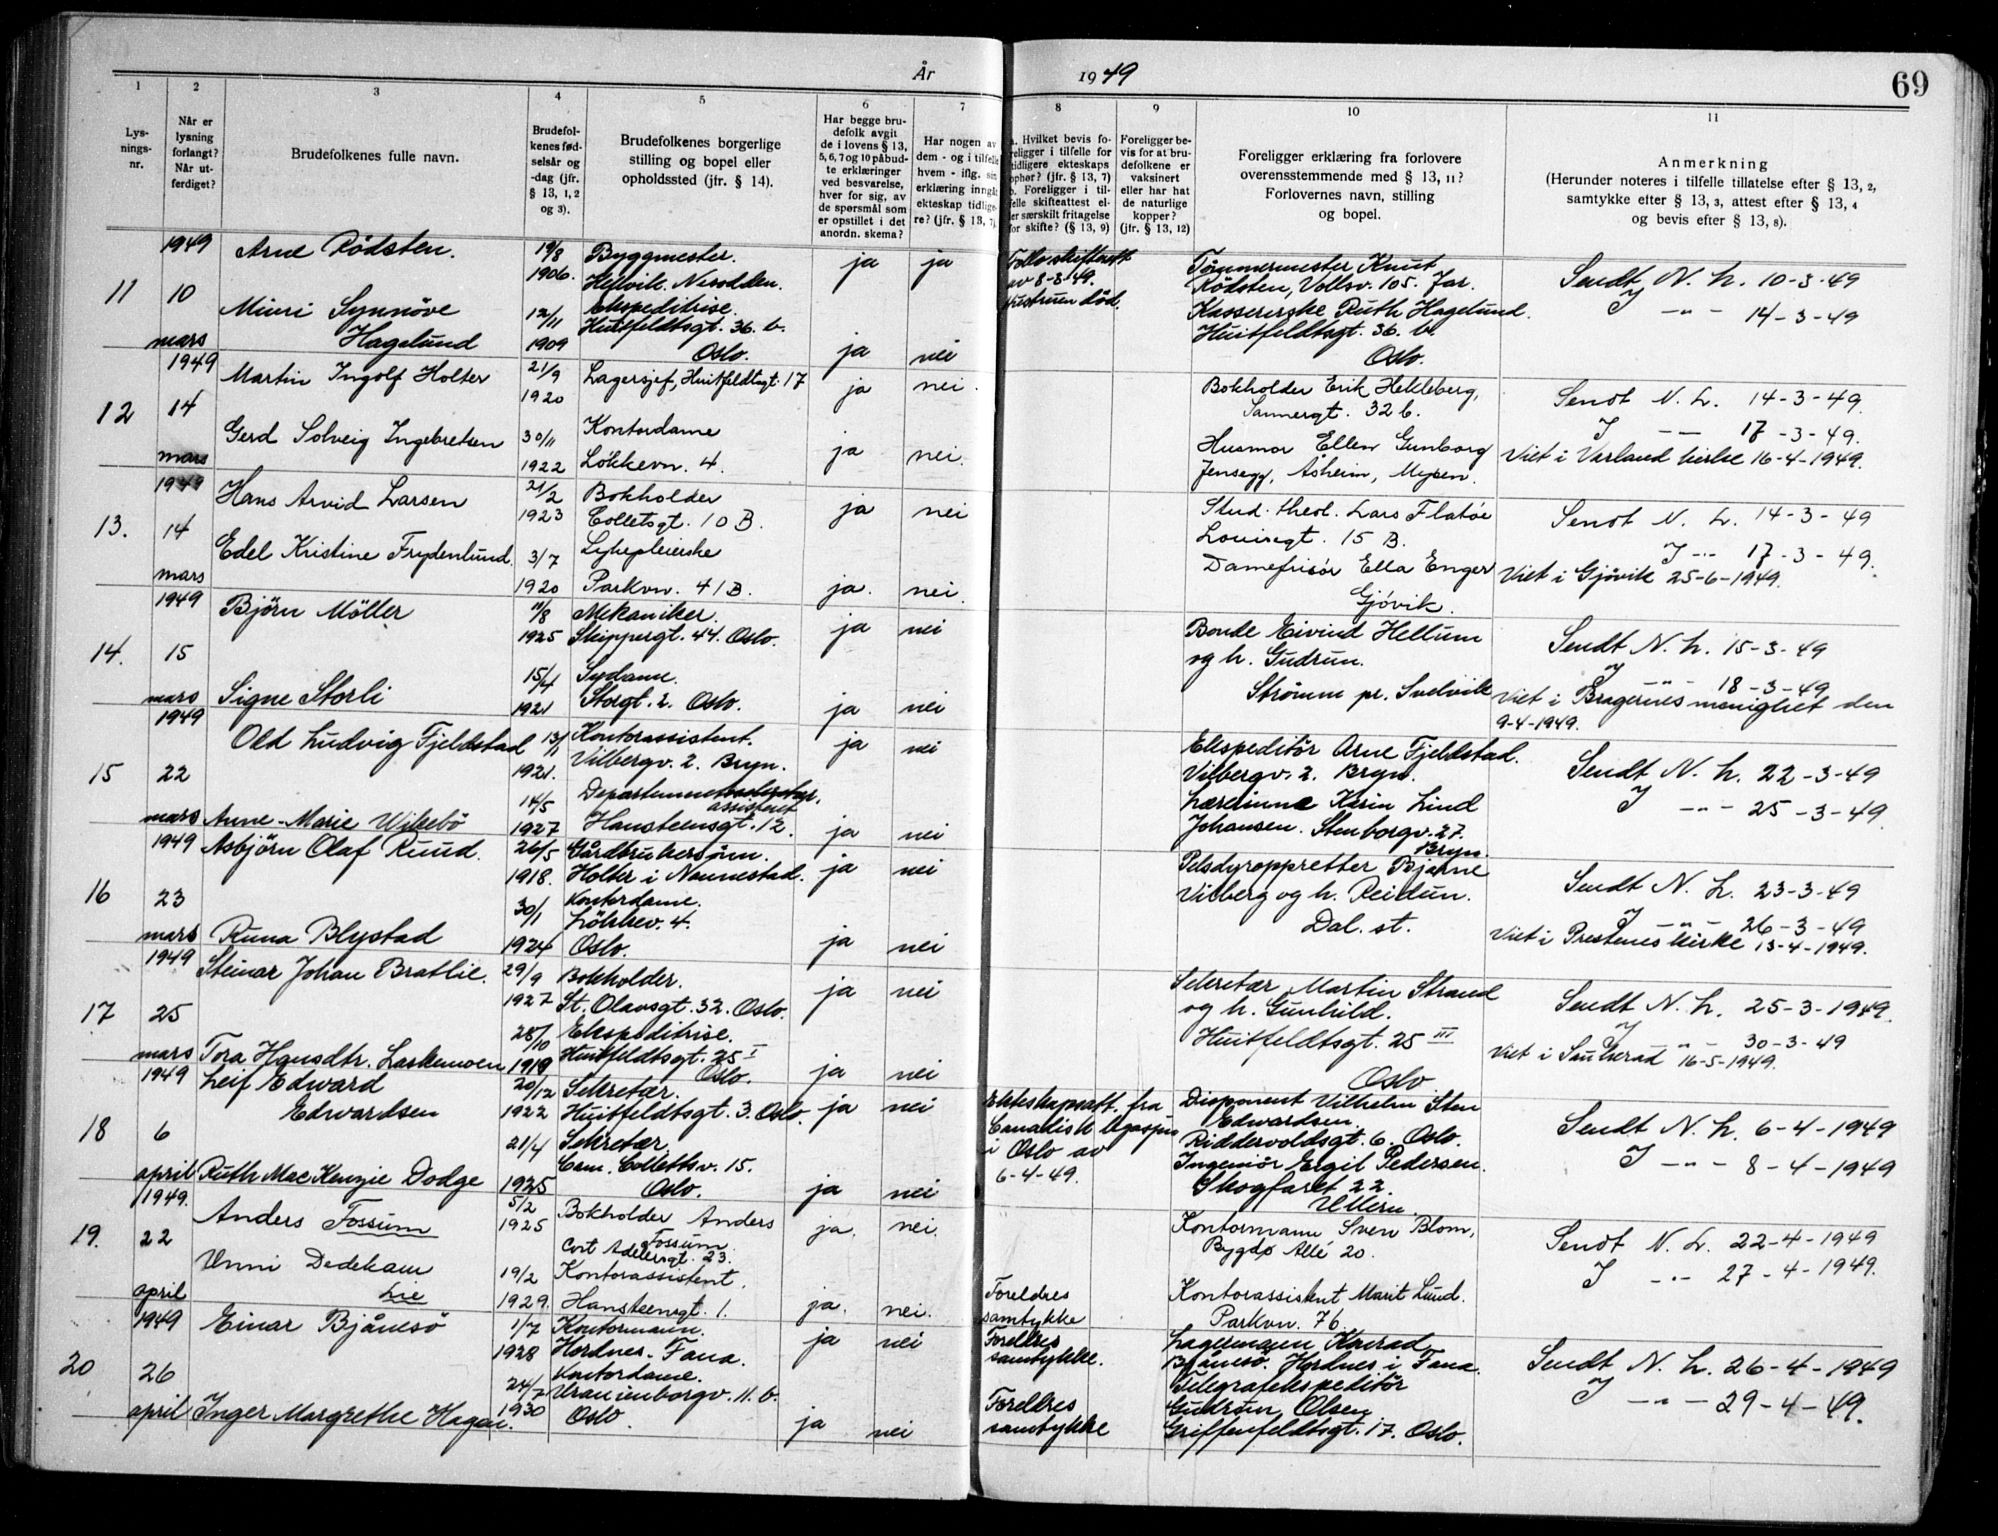 År 1949
69
1 2 3 4 5 6 7 8 9 10 11
Lys-
nings-
nr.
Når er
lysning
forlangt?
Når ut-
ferdiget?
Brudefolkenes fulle navn.
Brudefol-
kenes fød-
selsår og
-dag (jfr.
§ 13, 1, 2
og 3).
Brudefolkenes borgerlige
stilling og bopel eller
opholdssted (jfr. § 14).
Har begge bru-
defolk avgit
de i lovens § 13,
5, 6, 7 og 10 påbud-
te erklæringer
ved besvarelse,
hver for sig, av
de spørsmål som
er opstillet i det
anordn. skema?
Har nogen av
dem - og i tilfelle
hvem - iflg. sin
erklæring inngått
ekteskap tidlige-
re? (jfr. § 13, 7)
a. Hvilket bevis fo-
religger i tilfelle for
tidligere ekteskaps
ophør? (jfr. § 13, 7)
b. Foreligger i til-
felle skifteattest el-
ler særskilt fritagelse
for skifte? (§ 13, 9)
Foreligger be-
vis for at bru-
defolkene er
vaksinert
eller har hat
de naturlige
kopper?
(jfr. § 13, 12)
Foreligger erklæring fra forlovere
overensstemmende med § 13, 11?
Forlovernes navn, stilling
og bopel.
Anmerkning
(Herunder noteres i tilfelle tillatelse efter § 13, 2,
samtykke efter § 13, 3, attest efter § 13, 4
og bevis efter § 13, 8).
11
1949
10
mars
Arne Rödsten.
19/8
1906.
Byggmester.
Helvik. Nesodden.
ja
ja
Follo skifterett
av 8-3-49.
Hustruen död.
Tömmermester Knut
Rödsten, Vollsv. 105. Jar.
Sendt N. L. 10-3-49
J -"- 14-3-49
Mimi Synnöve
Hagelund
12/11
1909
Ekspeditrise.
Huitfeldtsgt. 36. b.
Oslo.
ja
nei
Kassererske Ruth Hagelund.
Huitfeldtsgt. 36. b.
Oslo.
12
1949
14
mars
Martin Ingolf Holter
21/9
1920
Lagersjef, Huitfeldtsgt. 17
ja
nei.
Bokholder Erik Hekleberg,
Sannergt. 32 b.
Sendt N. L. 14-3-49.
J -"- 17-3-49.
Gerd Solveig Ingebretsen
30/11
1922
Kontordame
Løkkevn. 4.
ja
nei.
Husmor Ellen Gunborg
Jensegg, Åsheim, Mysen.
Viet i Varland kirke 16-4-1949.
13.
1949
14
mars
Hans Arvid Larsen
21/2
1923
Bokholder
Colletsgt. 10 B.
ja
nei
Stud. theol. Lars Flatøe
Louisegt. 15 B.
Sendt N. L. 14-3-49
J -"- 17-3-49.
Edel Kristine Frydenlund.
3/7
1920
Sykepleierske
Parkvn. 41B.
ja.
nei.
Damefrisör Ella Enger
Gjövik.
Viet i Gjövik 25-6-1949.
14.
1949
15
mars
Björn Möller
11/8
1925
Mekaniker.
Skippergt. 44. Oslo.
ja
nei
Bonde Eivind Hellum
og h. Gudrun.
Strömm pr. Svelvik
Sendt N. L. 15-3-49
J -"- 18-3-49
Signe Storli
15/4
1921
Sydame.
Storgt. 2. Oslo.
ja
nei
Viet i Bragernes menighet den
9-4-1949.
15
1949
22
mars
Odd Ludvig Fjeldstad
13/1
1921.
Kontorassistent.
Vilbergv. 2. Bryn.
ja
nei
Ekspeditör Arne Fjeldstad.
Vilbergv. 2. Bryn.
Sendt N. L. 22-3-49
J -"- 25-3-49.
Anne-Marie Wikebö
14/5
1927
Departementssekretær.
assistent
Hansteensgt. 12.
ja
nei
Lærerinne Karin Lind
Johansen. Stenborgv. 27.
Bryn.
16
1949
23
mars
Asbjörn Olaf Ruud.
26/5
1918.
Gårdbrukersönn.
Holter i Nannestad.
ja
nei
Pelsdyroppretter Bjarne
Vilberg og h. Reidun.
Dal. st.
Sendt N. L. 23-3-49
J -"- 26-3-49
Runa Blystad
30/1
1924
Kontordame.
Lökkev. 4.
Oslo.
ja
nei
Viet i Prestenes kirke 13-4-1949.
17
1949
25
mars
Steinar Johan Bratlie.
29/9
1927
Bokholder.
St. Olavsgt. 32. Oslo.
ja
nei
Sekretær Martin Strand
og h. Gunhild.
Huitfeldtsgt. 25 III
Oslo
Sendt N. L. 25-3-1949.
J -"- 30-3-49
Tora Hansdtr. Laskemoen
28/10
1919
Ekspeditrise.
Huitfeldtsgt. 25 I
Oslo.
ja
nei
Viet i Sauherad 16-5-1949.
18
1949
6
april
Leif Edward
Edwardsen
20/12
1922
Sekretær.
Huitfeldtsgt. 3. Oslo.
ja
nei
Ekteskapsatt. fra
Canadisk legasjon
i Oslo av
6-4-49.
Disponent Vilhelm Sten
Edwardsen.
Riddervoldsgt. 6. Oslo.
Sendt N. L. 6-4-1949.
J -"- 8-4-1949
Ruth Mac Kenzie Dodge
21/4
1925
Sekretær.
Cam. Collettsv. 15.
Oslo.
ja
nei
Ingeniör Ergil Pedersen.
Skogfaret 22
Ullern.
19.
1949.
22
april
Anders Fossum
5/2
1925
Bokholder Anders
Fossum.
Cort Adelersgt. 23.
ja.
nei.
Kontormann Sven Blom,
Bygdø Allé 20.
Sendt N. L. 22-4-1949
J -"- 27-4-1949.
Unni Dedekam
Lie
19/2
1929.
Kontorassistent.
Hansteensgt. 1.
ja.
nei.
Foreldres
samtykke
Kontorassistent Marit Lund.
Parkvn. 76.
20
1949
26
april
Einar Bjånesö
1/7
1928
Kontormann.
Hordnes. Fana.
ja
nei
Foreldres
samtykke.
Lagermann Konrad
Bjånesö. Hordnes i Fana.
Sendt N. L. 26-4-1949
J -"- 29-4-49.
Inger Margrethe Hagen.
24/7
1930
Kontordame.
Uranienborgv. 11. b.
Oslo.
ja
nei
Foreldres
samtykke
Telegrafekspeditör
Gudrun Olsen
Griffenfeldtsgt. 17. Oslo.